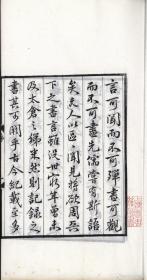 言可聞而不可殫書可觀
而不可盡先儒嘗有斯語
矣夫人以區〻聞見將欲周天
下之書言雖沒世窮年曷
及太倉之稊米然則記錄之
書其可闕乎古今紀載益多